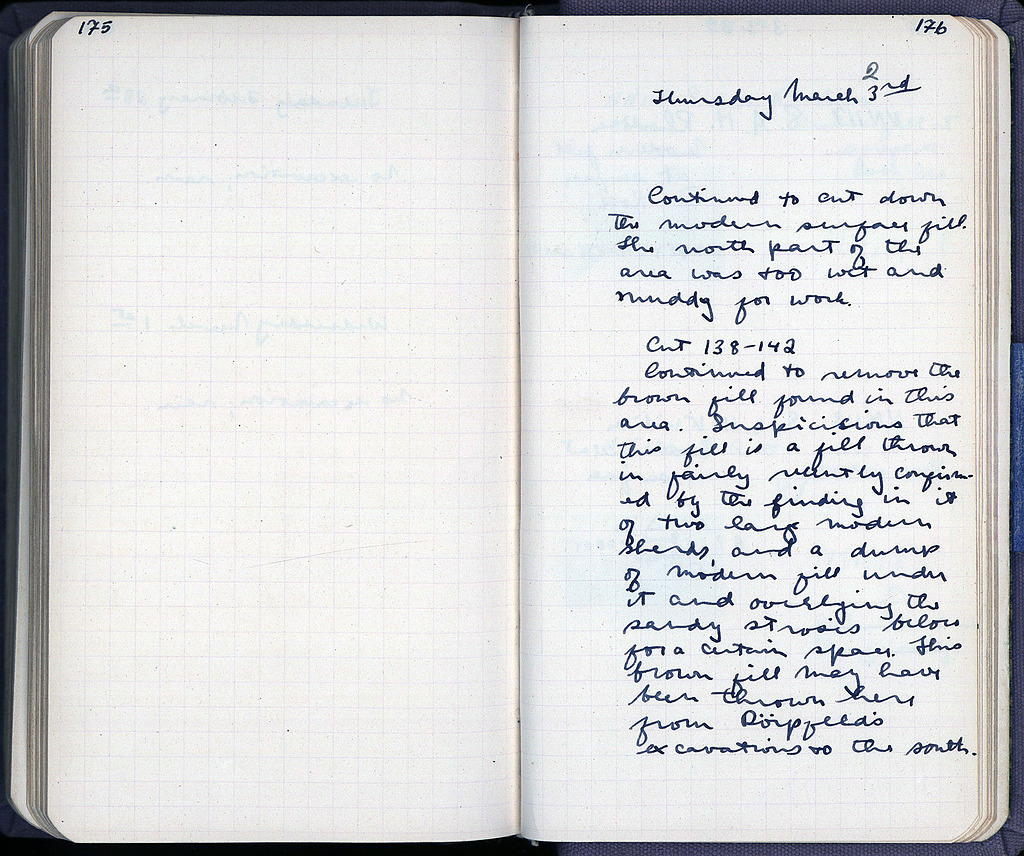 175
176
Thursday March 2 3rd
Continued to cut down
the modern surface fill.
The north part of the
area was too wet and
muddy for work.
Cut 138-142
Continued to remove the
brown fill found in this
area. Suspicisions that
this fill is a fill thrown
in fairly recently confirm-
ed by the finding in it
of two large modern
sherds, and a dump
of modern fill under
it and overlying the
sandy strosis below
for a certain space. This
brown fill may have
been thrown here
from Dörpfeld's
excavations to the south.